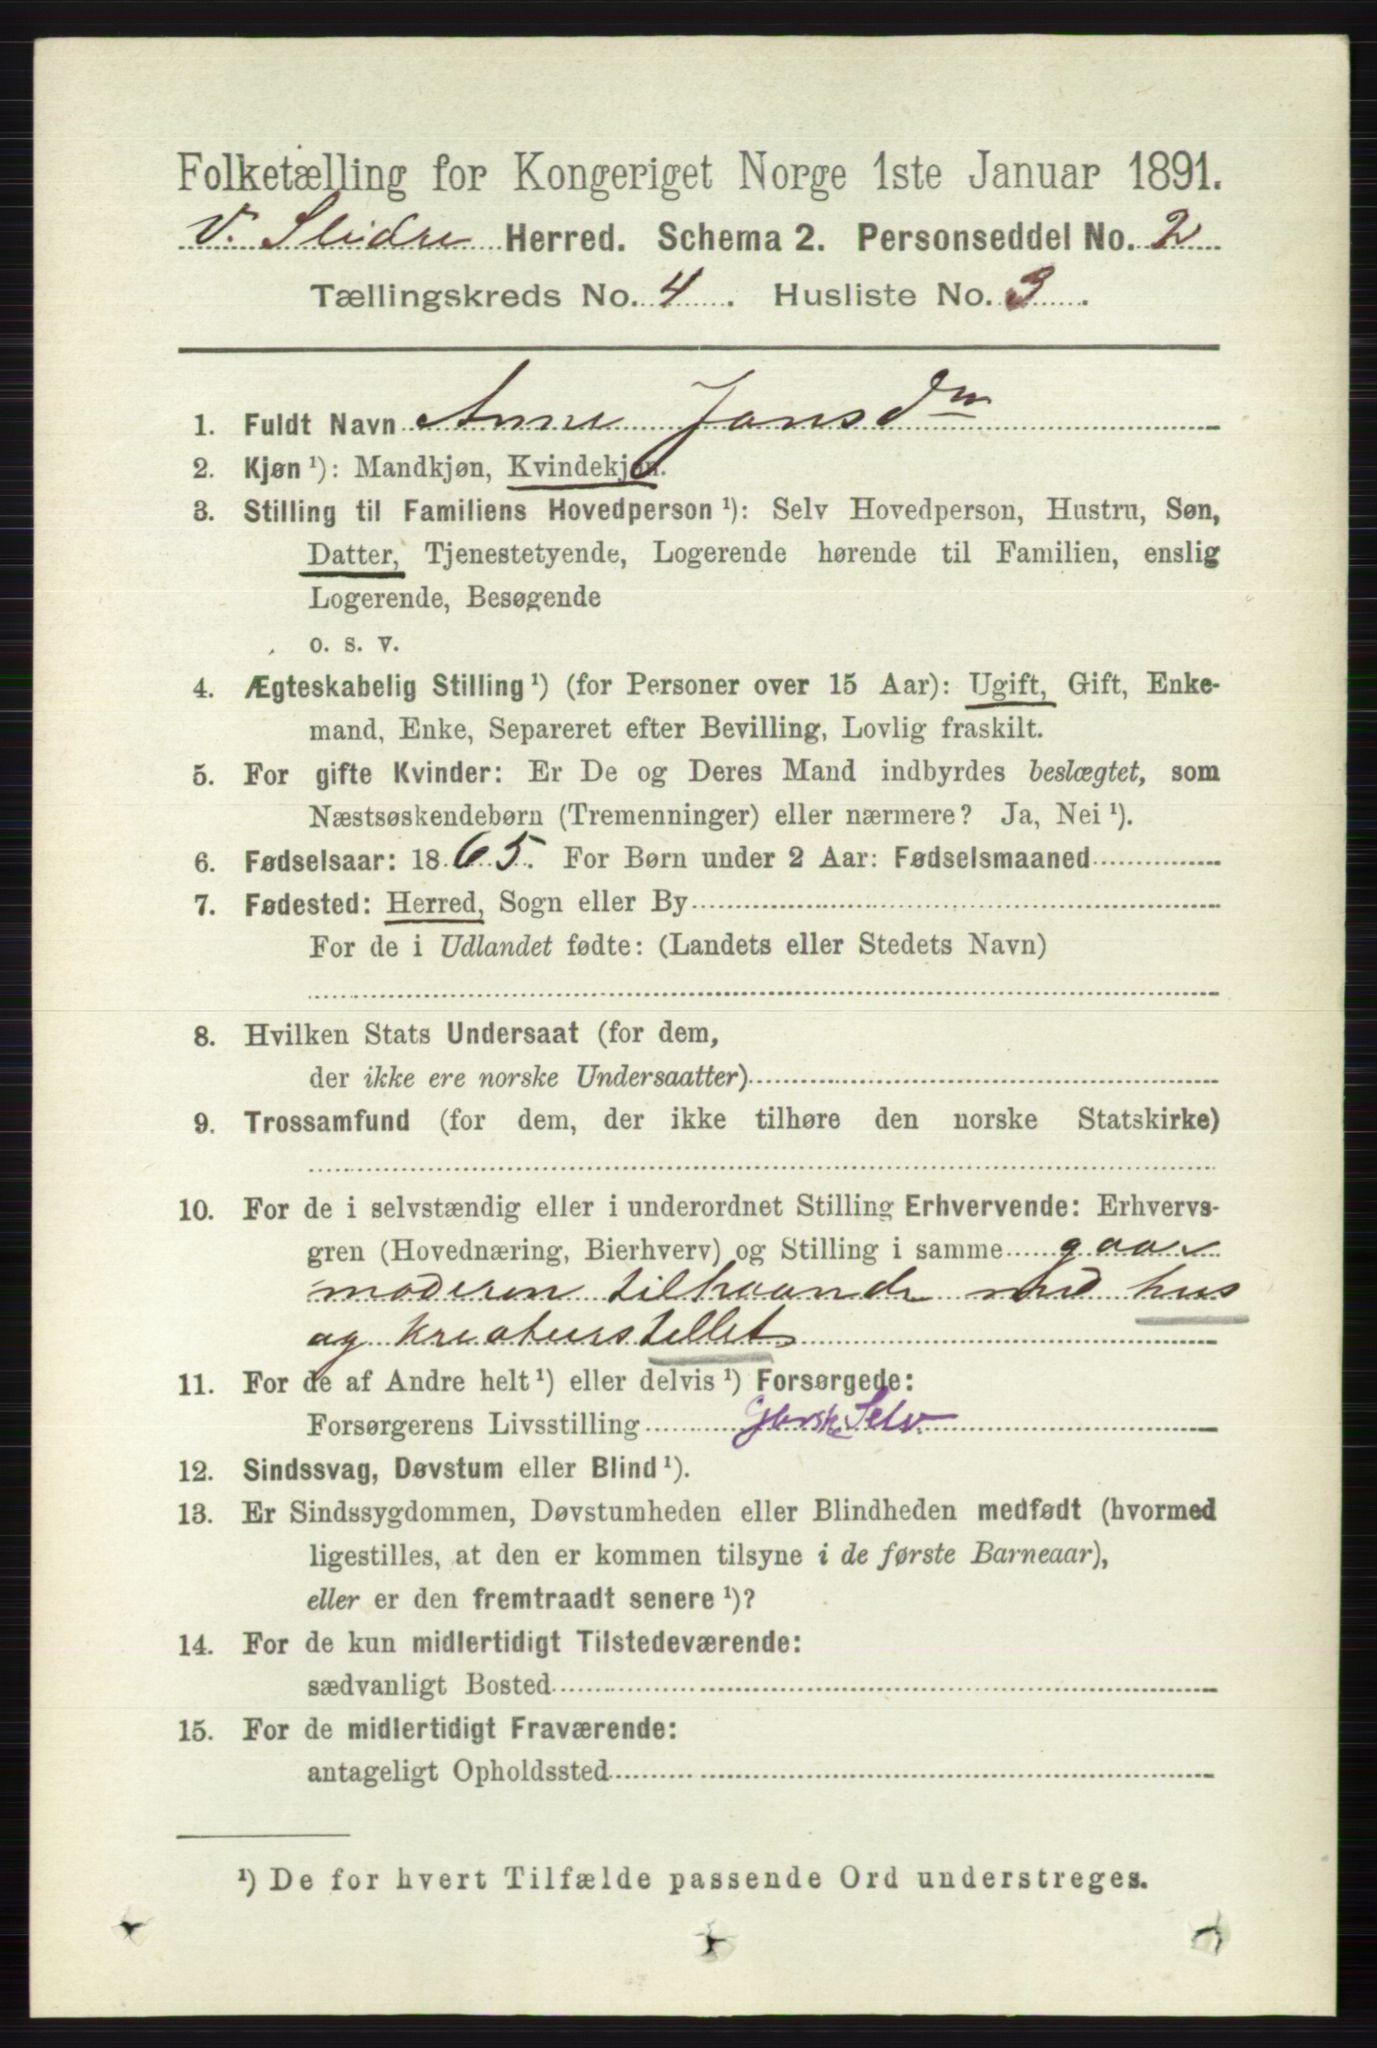 Folketælling for Kongeriget Norge 1ste Januar 1891.
V. Slidre Herred. Schema 2. Personseddel No. 2
Tællingskreds No. 4. Husliste No. 3.
1. Fuldt Navn Anne Jansdn
2. Kjøn ¹): Mandkjøn, Kvindekjøn.
3. Stilling til Familiens Hovedperson ¹): Selv Hovedperson, Hustru, Søn,
Datter, Tjenestetyende, Logerende hørende til Familien, enslig
Logerende, Besøgende
o. s. v.
4. Ægteskabelig Stilling ¹) (for Personer over 15 Aar): Ugift, Gift, Enke-
mand, Enke, Separeret efter Bevilling, Lovlig fraskilt.
5. For gifte Kvinder: Er De og Deres Mand indbyrdes beslægtet, som
Næstsøskendebørn (Tremenninger) eller nærmere? Ja, Nei ¹).
6. Fødselsaar: 1865. For Børn under 2 Aar: Fødselsmaaned
7. Fødested: Herred, Sogn eller By
For de i Udlandet fødte: (Landets eller Stedets Navn)
8. Hvilken Stats Undersaat (for dem,
der ikke ere norske Undersaatter)
9. Trossamfund (for dem, der ikke tilhøre den norske Statskirke)
10. For de i selvstændig eller i underordnet Stilling Erhvervende: Erhvervs-
gren (Hovednæring, Bierhverv) og Stilling i samme gaar
moderen tilhaande med hus
og kreaturstellet
11. For de af Andre helt ¹) eller delvis ¹) Forsørgede:
Forsørgerens Livsstilling Selv.
12. Sindssvag, Døvstum eller Blind ¹).
13. Er Sindssygdommen, Døvstumheden eller Blindheden medfødt (hvormed
ligestilles, at den er kommen tilsyne i de første Barneaar),
eller er den fremtraadt senere ¹)?
14. For de kun midlertidigt Tilstedeværende:
sædvanligt Bosted
15. For de midlertidigt Fraværende:
antageligt Opholdssted
¹) De for hvert Tilfælde passende Ord understreges.